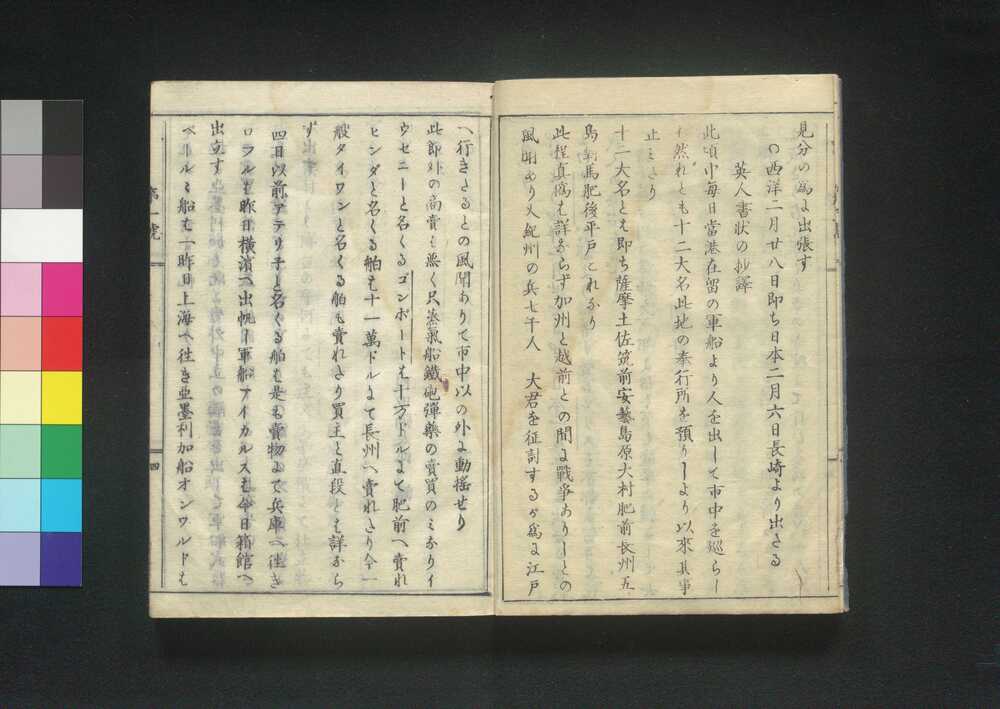 見分の爲に出張す
○西洋二月廿八日即ち日本二月六日長崎より出さる
英人書状の抄譯
此頃ハ毎日當港在留の軍船より人を出して市中を巡らし
然れとも十二大名此地の奉行所を預りしより以來其事
止みたり
十二大名とは即ち薩摩土佐筑前安藝島原大村肥前長州五
島對馬肥後平戸これなり
此程真偽は詳ならず加州と越前との間に戰爭ありしとの
風聞あり又紀州の兵七千人 大君を征討するが爲に江戸
へ行きたるとの風聞ありて市中以の外に動搖せり
此節外の商賣は悪く只蒸氣船鐵砲彈藥の賣買のみなりイ
ウセニーと名くるゴンボートは十万ドルにて肥前へ賣れ
ヒンダと名くる舶は十一萬ドルにて長州へ賣れたり今一
般タイワンと名くる舶も賣れたり買主と直段とは詳なら
ず
四日以前アテリ子と名くる舶も是も賣物にて兵庫へ往き
ロフルも昨日横濱へ出帆し軍船アイカルスも今日箱館へ
出立す
ベールミ船も一昨日上海へ往き亜墨利加船オンワルドも
第一號
四